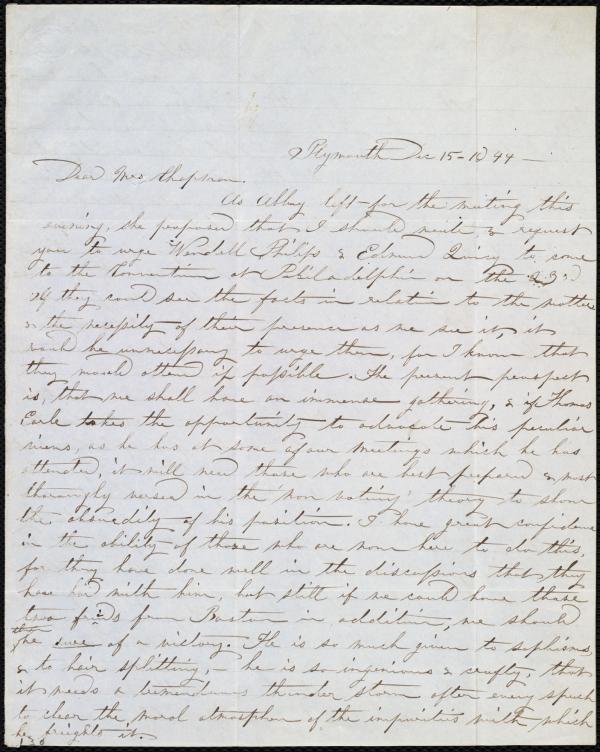 Plymouth Dec 15-1844-
Dear Mrs Chapman.
As Abby left for the meeting this
evening, she proposed that I should write & request
you to urge Wendell Philips & Edmund Quincy to come
to the Convention at Phililadelphia on the 23d
If they could see the facts in relation to the matter
& the necessity of their presence as we see it, it
would be unnecessary to urge them, for I know that
they would attend if possible. The present prospect
is, that we shall have an immense gathering, & if Thomas
Earle takes the opportunity to advocate his peculiar
views, as he has at some of our meetings which he has
attended, it will need those who are best prepared & most
thoroughly versed in the 'non voting' theory to show
the absurdity of his position. I have great confidence
in the ability of those who are now here to do this,
for they have done well in the discussions that they
have had with him, but still if we could have these
two from Boston in addition, we should
the sure of a victory. He is so much given to sophisms,
& to hair splitting,- he is so ingenious & crafty, that
it needs a tremendous thunder storm after every speech
to clear the moral atmosphere of the impurities with which
he freights it.